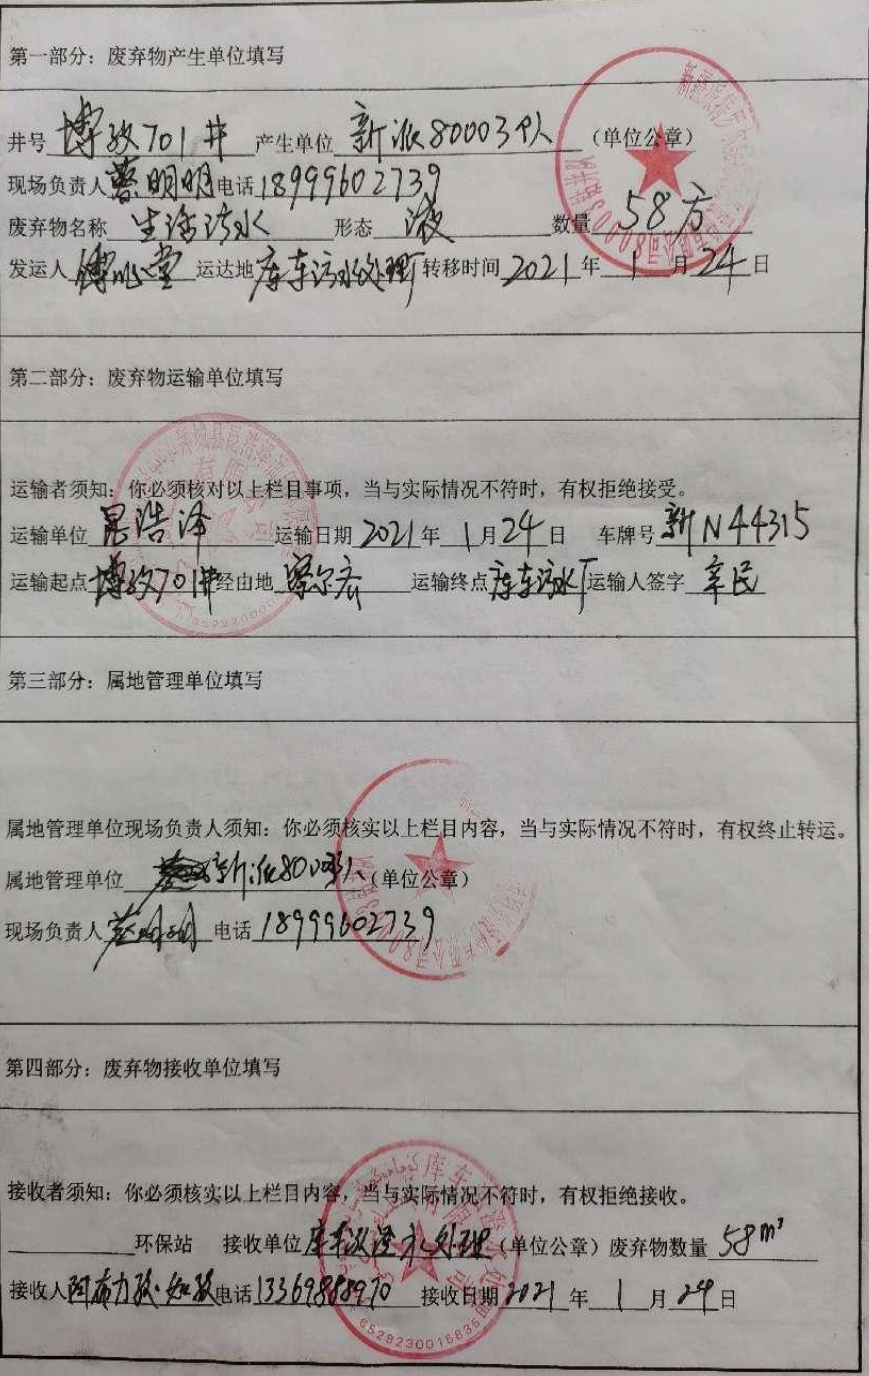 第一部分：废弃物产生单位填写
井号 博孜701井 产生单位 新派80003队 （单位公章）
现场负责人 蔡明明 电话 18999602739
废弃物名称 生活污水 形态 液 数量 58方
发运人 运达地 库车污水处理厂 转移时间 2021 年 1 月 24 日
第二部分：废弃物运输单位填写
运输者须知：你必须核对以上栏目事项，当与实际情况不符时，有权拒绝接受。
运输单位 昆浩泽 运输日期 2021 年 1 月 24 日 车牌号 新N44315
运输起点 博孜701井 经由地 察尔齐 运输终点 库车污水厂 运输人签字 辛民
第三部分：属地管理单位填写
属地管理单位现场负责人须知：你必须核实以上栏目内容，当与实际情况不符时，有权终止转运。
属地管理单位 新派80003队 （单位公章）
现场负责人 蔡明明 电话 18999602739
第四部分：废弃物接收单位填写
接收者须知：你必须核实以上栏目内容，当与实际情况不符时，有权拒绝接收。
环保站 接收单位 库车 水处理 （单位公章）废弃物数量 58m³
接收人 电话 13369888970 接收日期 2021 年 1 月 24 日
6528230015835